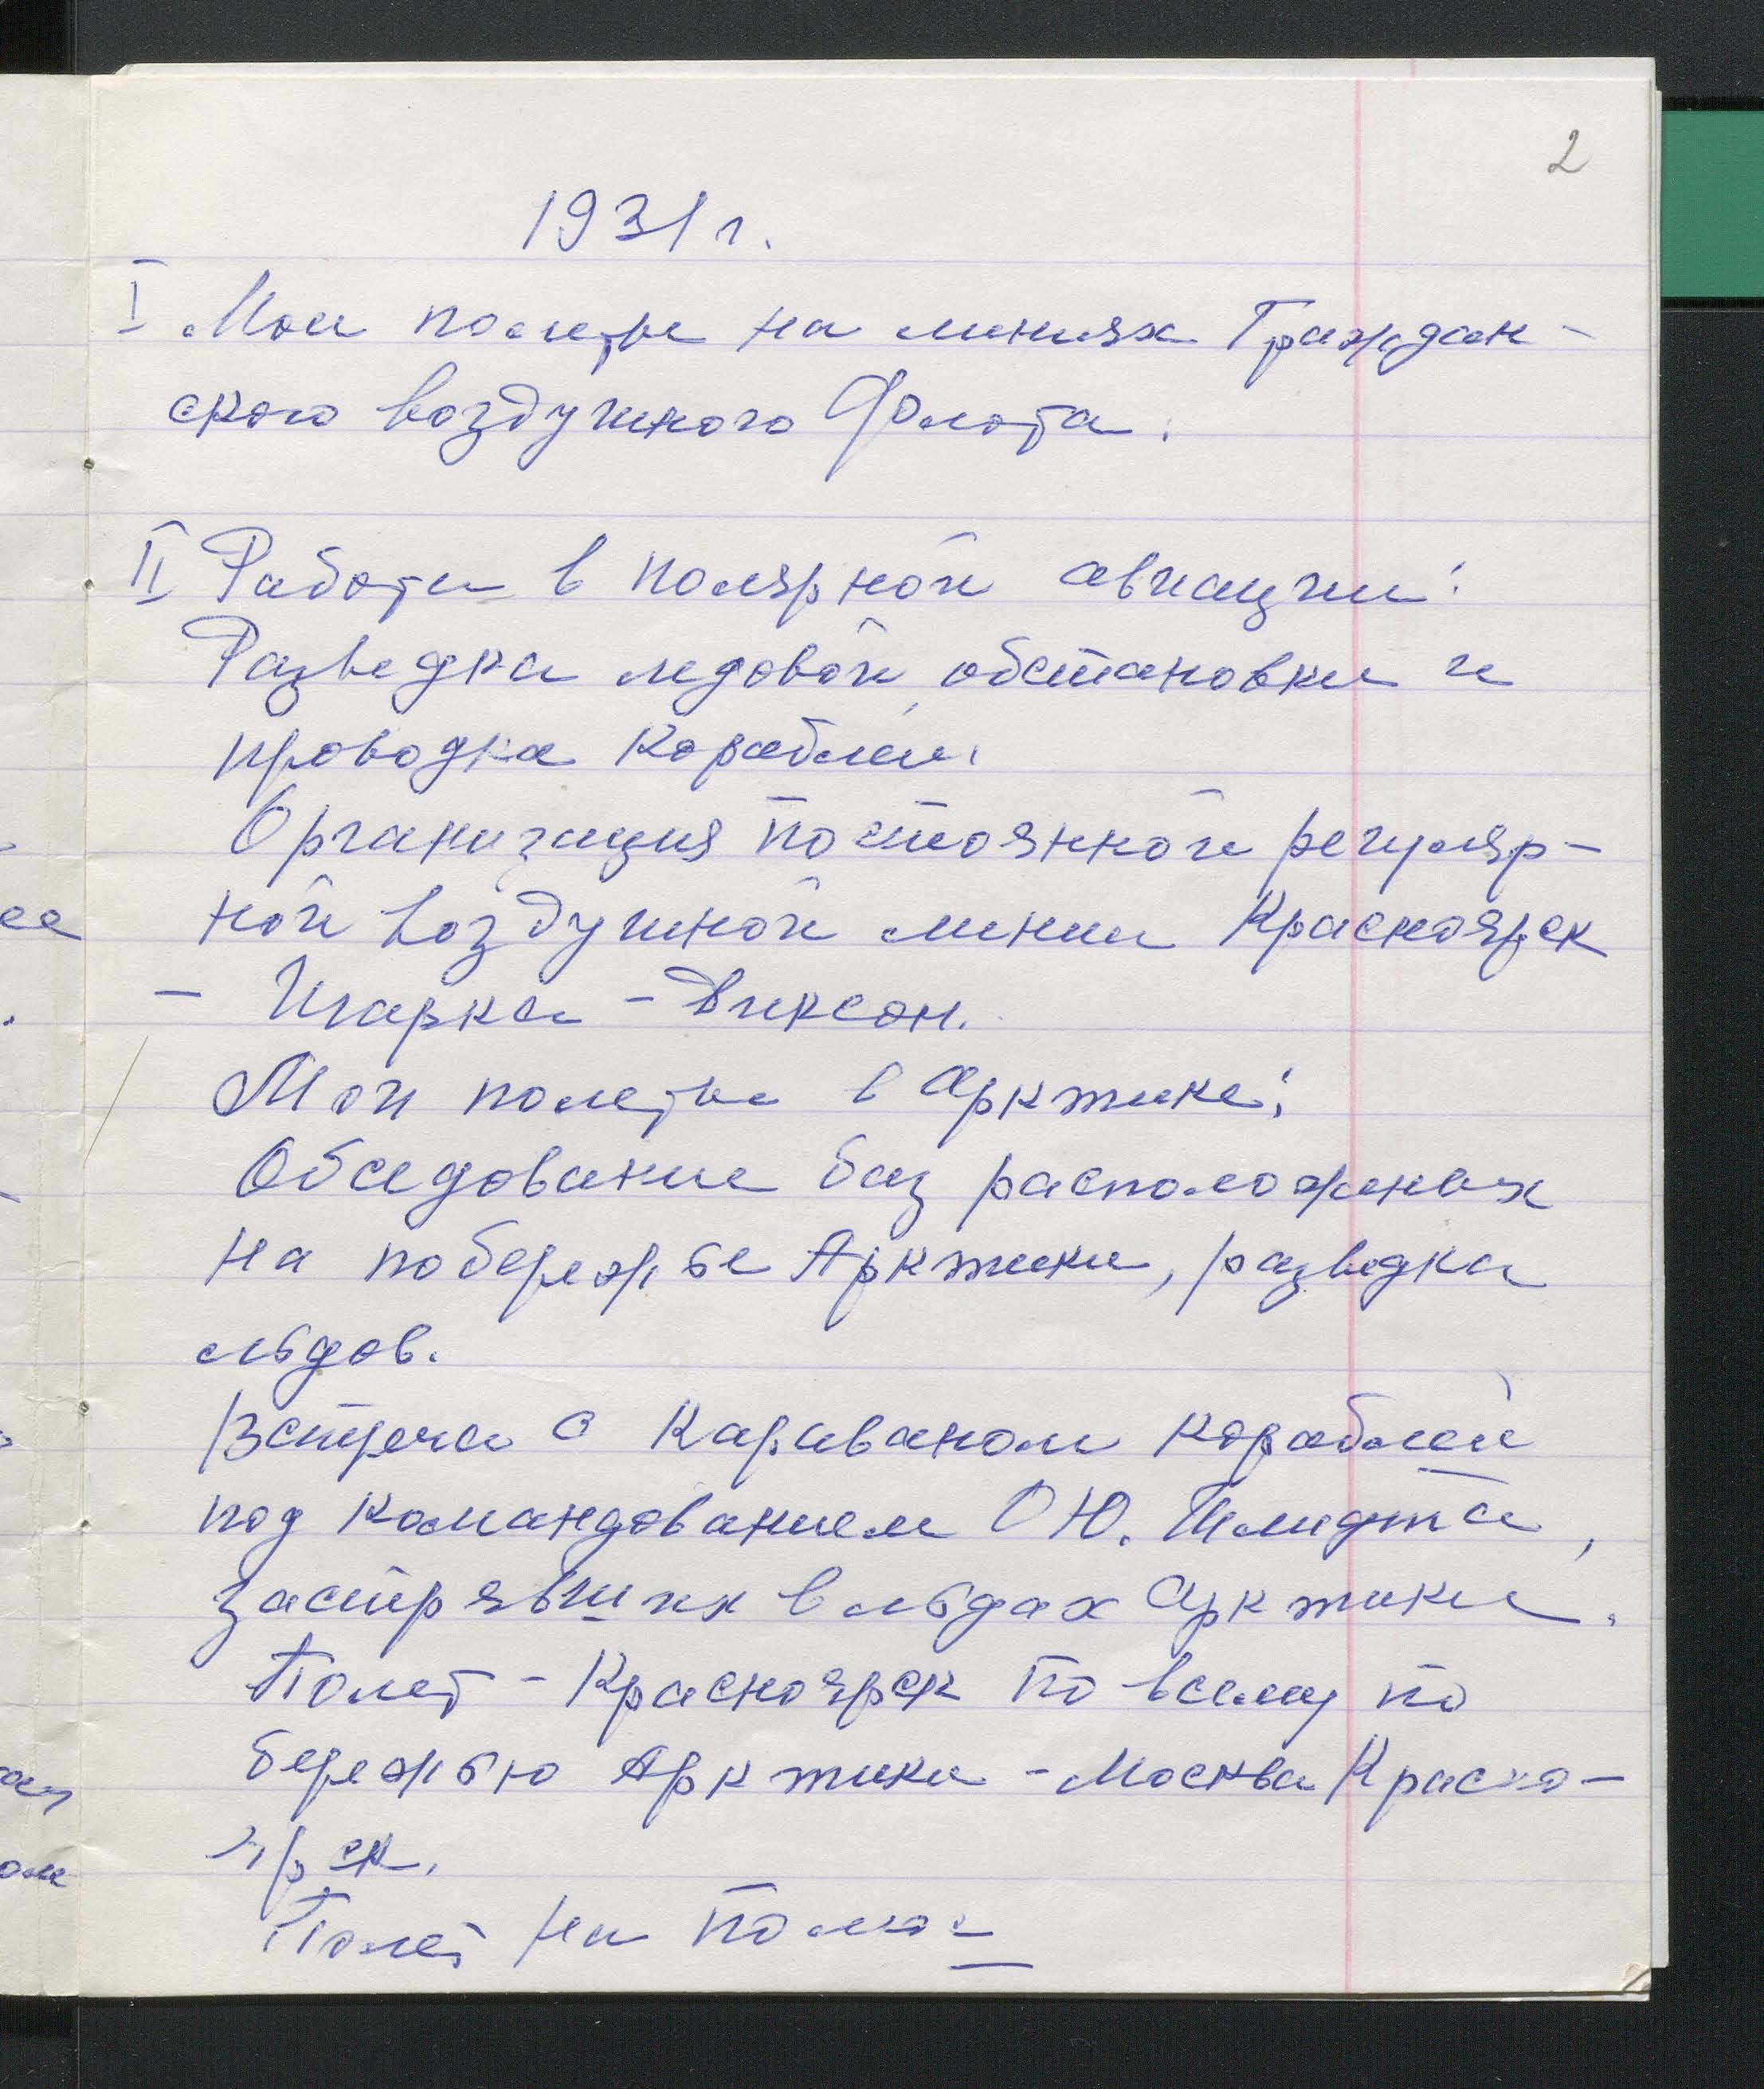 2
1931 г.
I Мои полеты на линиях Граждан-
ского воздушного Флота.
II Работа в полярной авиации:
Разведка ледовой обстановки и
проводка кораблей.
Организация постоянной регуляр-
ной воздушной линии Красноярск
- Игарка - Диксон.
Мои полеты в Арктике:
Обследование баз расположеных
на побережье Арктики, разведка
льдов.
Встреча с караваном кораблей
под командованием О Ю. Шмидта,
застрявших в льдах Арктики.
Полет - Красноярск по всему по
бережью Арктики - Москва Красно-
ярск.
Полет на Полюс